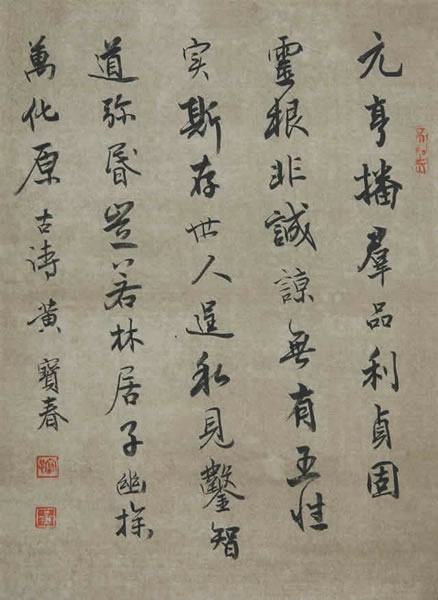 元亨播羣品利貞固
靈根非誠諒無有五性
实斯存世人逞私見鑿智
道弥昬豈若林居子幽探
萬化原 古涛 黃寶春